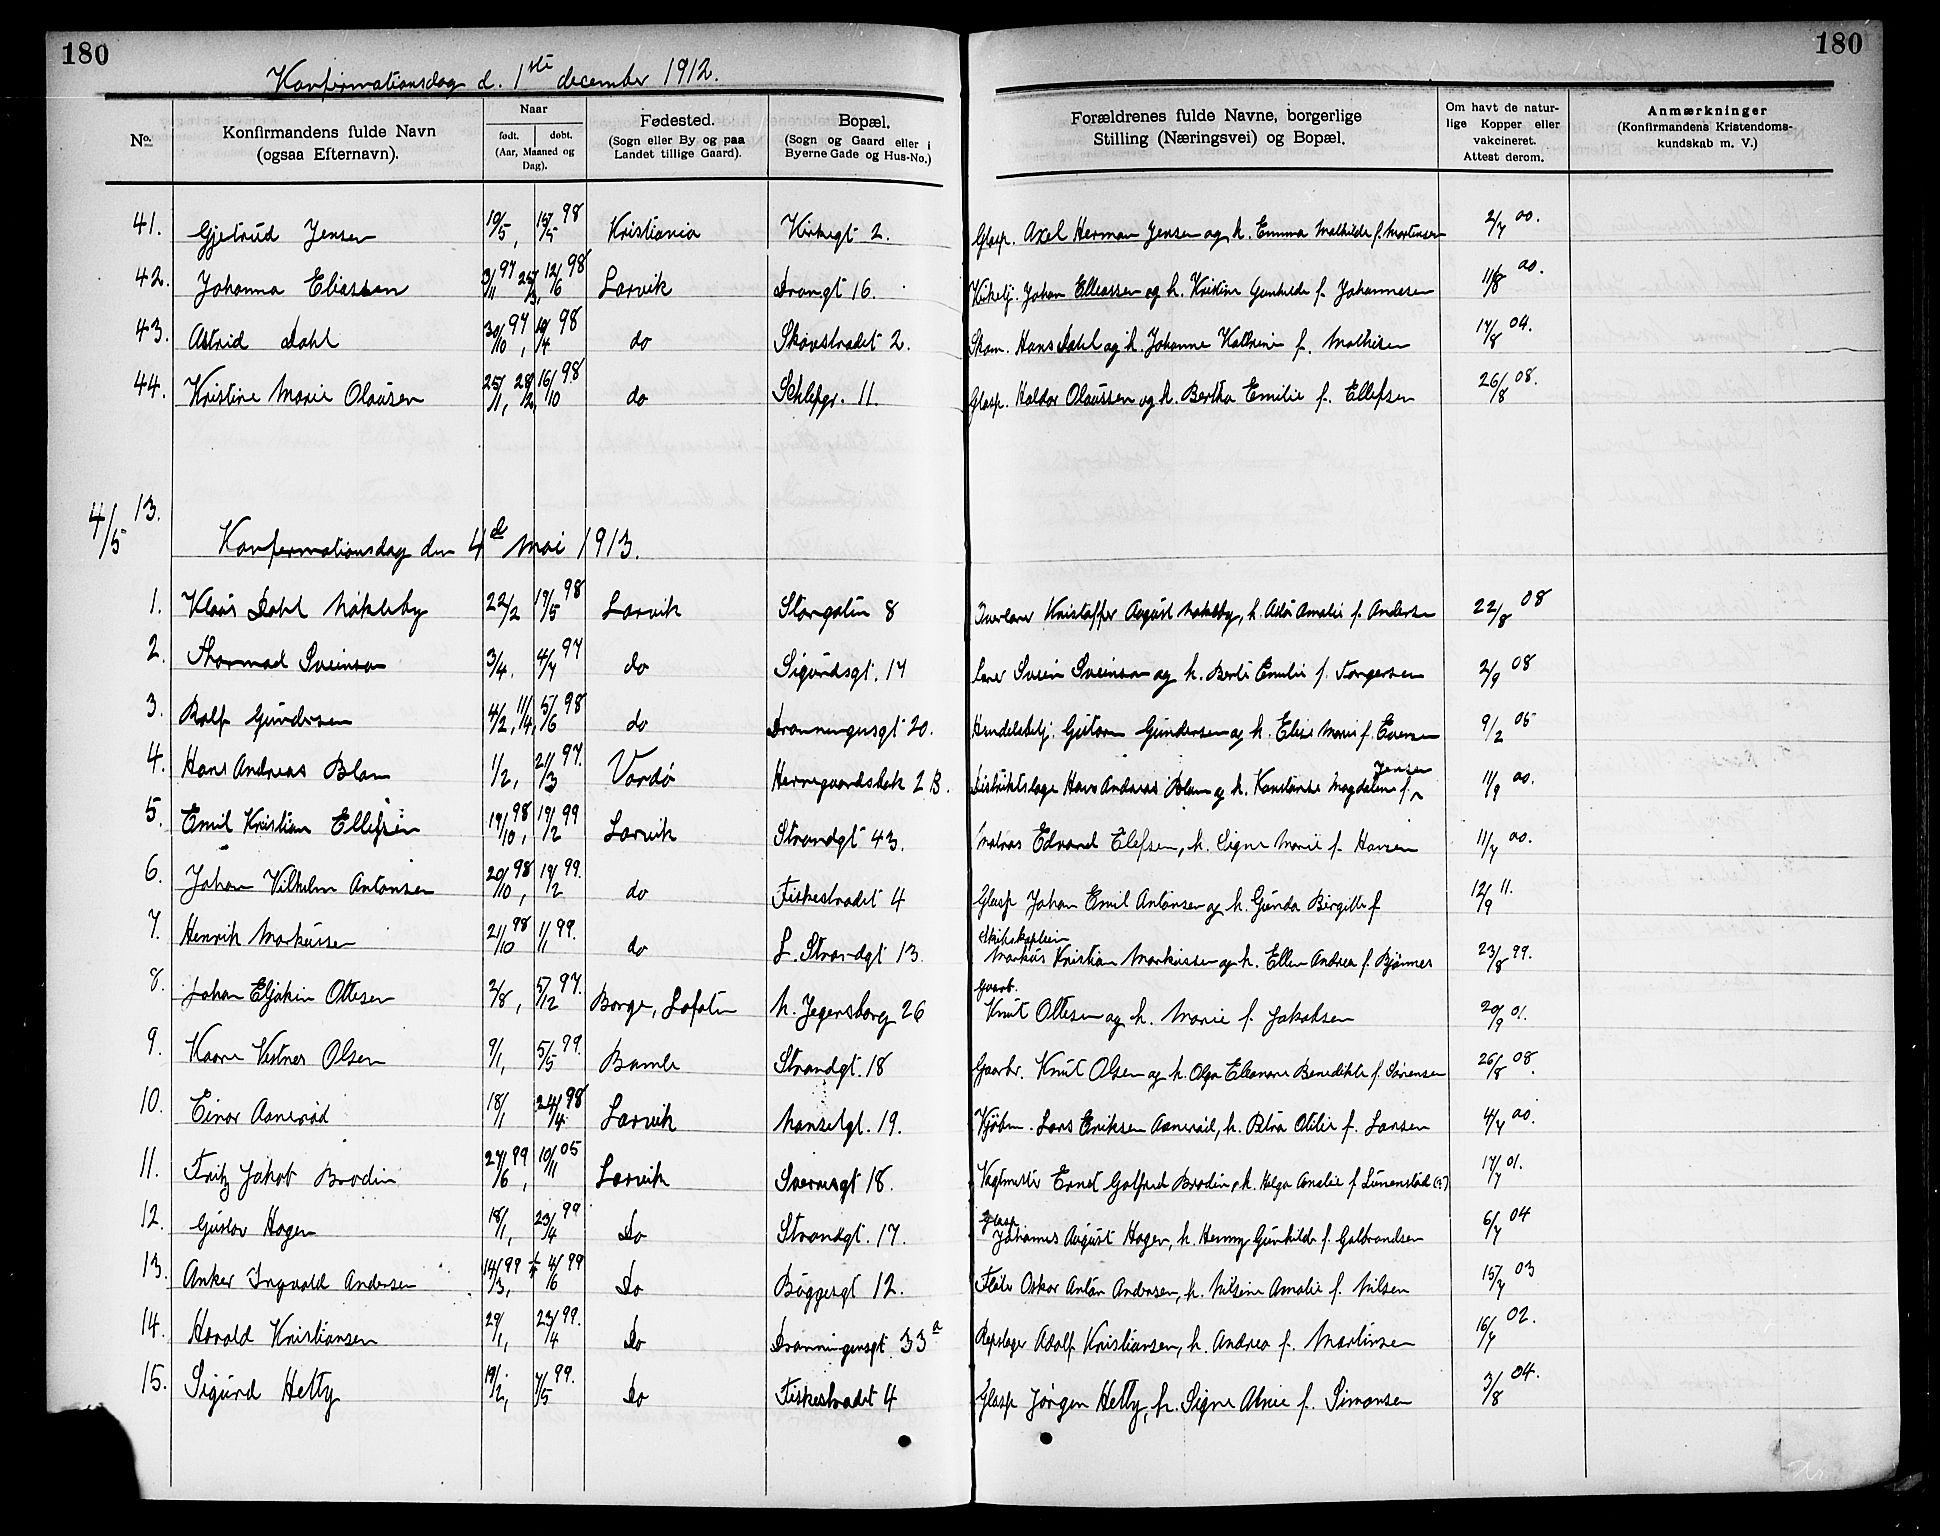 180
180
Konfirmationsdag d. 1ste december 1912.
No.
Konfirmandens fulde Navn (ogsaa Efternavn).
Naar
født. dobt.
(Aar, Maaned og Dag).
Fødested.
(Sogn eller By og paa Landet tillige Gaard).
Bopæl.
(Sogn og Gaard eller i Byerne Gade og Hus-No.)
Forældrenes fulde Navne, borgerlige Stilling (Næringsvei) og Bopæl.
Om havt de naturlige Kopper eller vakcineret. Attest derom.
Anmærkninger
(Konfirmandens Kristendomskundskab m. V.)
41. Gjetrud Jensen 19/5, 15/5 98 Kristiania Kirkegt 2. Glasp. Axel Herman Jensen og h. Emma Mathilde f. Mortensen 2/7 00.
42. Johanna Eliassen 3/11 97 25/3, 12/6 98 Larvik Drongt 16. Kirketj. Johan Elleassen og h. Kristine Gunhilde f. Johannesen 11/8 00.
43. Astrid Dahl 30/10 97, 19/4 98 do Skovstrædet 2. Skom. Hans Dahl og h. Johanne Kathrine f. Mathisen 17/8 04.
44. Kristine Marie Olausen 25/1, 28/2, 16/10 98 do Schlepgr. 11. Glasp. Haldor Olaussen og h. Bertha Emilie f. Ellefsen 26/8 08.
4/5 13. Konfermationsdag den 4de Mai 1913.
1. Klaus Dahl Nøkleby 22/2 17/5 98 Larvik Storgaten 8 Kristoffer August Nøkleby, h. Asta Amalie f. Andersen 22/8 08
2. Thormod Sveinson 3/4. 4/7 97 do Sigurdsgt. 17 Svein Sveinson og h. Berte Emilie f. Torgersen 2/9 08
3. Rolf Gundersen 4/2, 11/4, 5/6 98 do Dronningensgt 20. Handelsbetj. Gutorm Gundersen og h. Elise Marie f. Evensen 9/2 05
4. Hans Andreas Blom 1/2, 21/3 97. Vardø Herregaardsbak 2 B. Distriktslæge Hans Andreas Blom og h. Konstanse Magdalene f. Jensen 11/9 00.
5. Emil Kristian Ellefsen 19/10 98, 19/2 99 Larvik Strandgt 43. Matros Edvard Elefsen, h. Signe Marie f. Hansen 11/7 00.
6. Johan Vilhelm Antonsen 20/10 98, 19/2 99. do Fiskestrædet 4 Glasp Johan Emil Antonsen og h. Gunda Birgitte f 12/9 11.
7. Henrik Markussen 21/10 98 1/1 99. do L. Strandgt 13 Skibskaptein Markus Kristian Markussen og h. Ellen Andrea f. Bjønnes 23/8 99.
8. Johan Eljakin Ottesen 2/8, 5/12 97. Borge, Lofoten N. Jegersborg 26 Knut Ottesen og h. Marie f. Jakobsen 20/9 01.
9. Kaare Vestnes Olsen 9/1, 5/5 99. Bamle Strandgt. 18 Gaarbr. Knut Olsen og h. Olga Eleonore Benedikte f. Sørensen 26/8 08.
10. Einar Aanerød 18/1 24/4 98 Larvik Nansetgt. 19. Kjøbm. Lars Eriksen Aanerød, h. Petra Otilie f. Larsen 4/7 00.
11. Fritz Jakob Brodin 27/6 99, 10/11 05 Larvik Sverresgt 18. Vagtmester Ernst Gotfred Brodin, h. Helga Amalie f Linnenstad (?) 17/7 01.
12. Gustav Hagen 18/1, 23/4 99 Do Strandgt. 17. Glasp. Johannes August Hagen, h. Henny Gunhilde f. Gulbrandsen 6/7 04
13. Anker Ingvald Andersen 14/3, 99 4/16 99 Do Byggesgt 12. Oskar Anton Andersen, h. Nilsine Amalie f. Nilsen 15/7 03
14. Harald Kristiansen 29/1, 23/4 99. Do Dronningensgt. 33a Repslager Adolf Kristiansen, h. Andrea f. Martinsen 16/7 02.
15. Sigurd Hetty 19/2, 7/5 99. Do Fiskestrædet 4 Glasp Jørgen Hetty, h. Signe f. Simonsen 3/8 04.